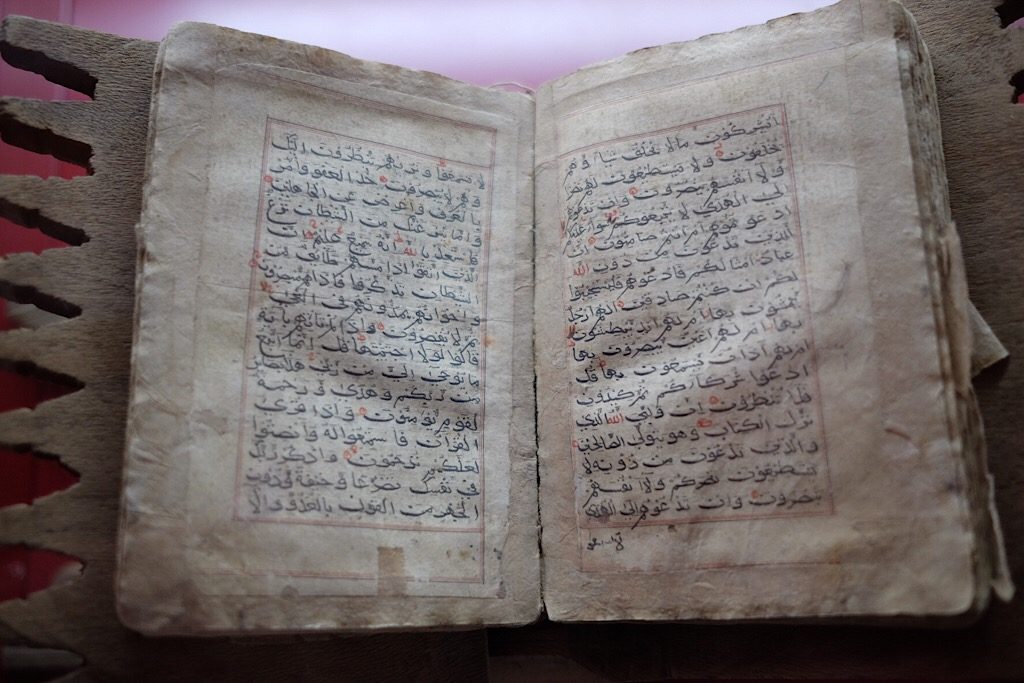 أيشركون ما لا يخلق شيئا وهم
يخلقون ولا يستطيعون لهم نصرا
ولا أنفسهم ينصرون وإن تدعوهم
إلى الهدى لا يتبعوكم سواء عليكم
أدعوتموهم أم أنتم صامتون إن
الذين تدعون من دون الله
عباد أمثالكم فادعوهم فليستجيبوا
لكم إن كنتم صادقين ألهم أرجل
يمشون بها أم لهم أيد يبطشون
بها أم لهم أعين يبصرون بها
أم لهم آذان يسمعون بها قل
ادعوا شركاءكم ثم كيدون
فلا تنظرون إن وليي الله الذي
نزل الكتاب وهو يتولى الصالحين
والذين تدعون من دونه لا
يستطيعون نصركم ولا أنفسهم
ينصرون وإن تدعوهم إلى الهدى
لا يسمعوا وتراهم ينظرون إليك
وهم لا يبصرون خذ العفو وأمر
بالعرف وأعرض عن الجاهلين
وإما ينزغنك من الشيطان نزغ
فاستعذ بالله إنه سميع عليم إن
الذين اتقوا إذا مسهم طائف من
الشيطان تذكروا فإذا هم مبصرون
وإخوانهم يمدونهم في الغي
ثم لا يقصرون وإذا لم تأتهم بآية
قالوا لولا اجتبيتها قل إنما أتبع
ما يوحى إلي من ربي هذا بصائر
من ربكم وهدى ورحمة
لقوم يؤمنون وإذا قرئ
القرآن فاستمعوا له وأنصتوا
لعلكم ترحمون واذكر ربك
في نفسك تضرعا وخيفة ودون
الجهر من القول بالغدو والآ